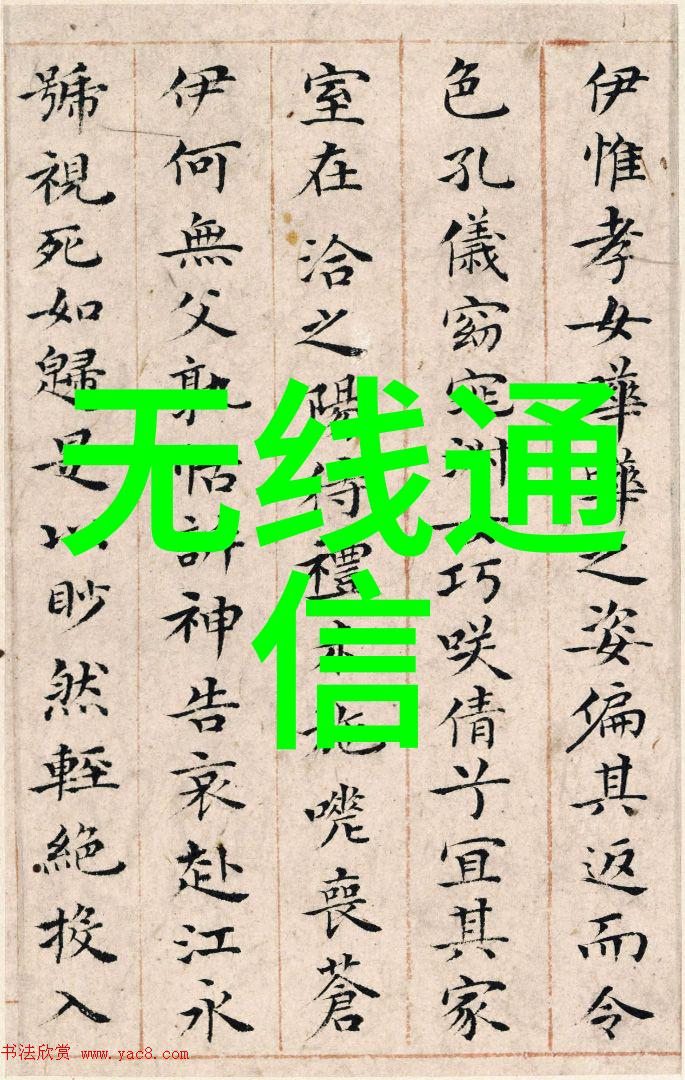 伊惟孝女曄曄之姿偏其返而令
色孔儀窈窕淑女巧咲倩兮宜其家
室在洽之陽待禮未施嗟喪蒼
伊何無父孰怙訴神告哀赴江永
號視死如歸是以眇然輕絕投入
无线通
信
书法欣赏 www.yac8.com